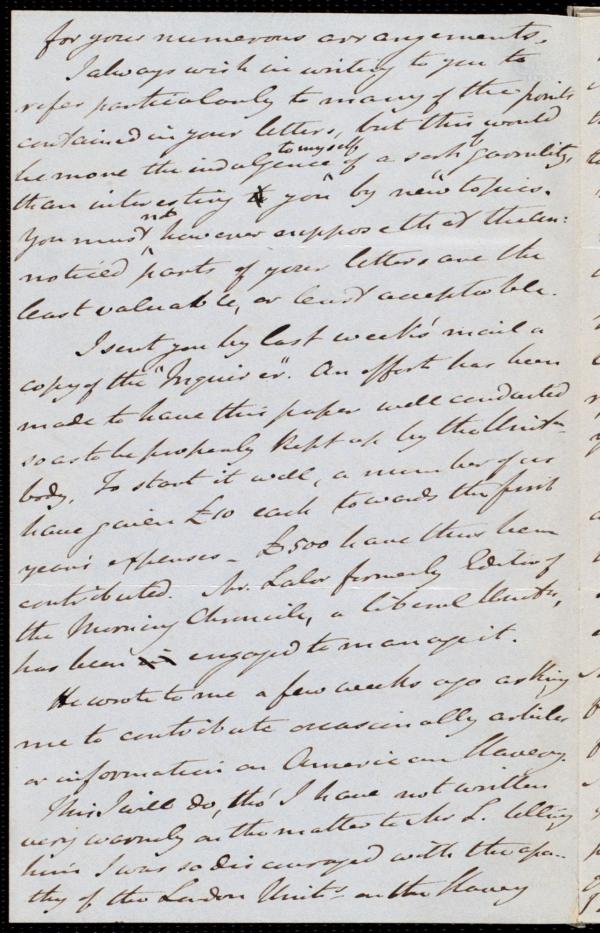 for your numerous arrangements.
I always wish in writing to you to
refer particularly to many of the points
contained in your letters, but this would
be more the indulgence to myself of a sort of garrulity,
than interesting to you by new topics.
You must not however suppose that the un=
noticed parts of your letters are the
least valuable, or least acceptable.
I sent you by last week's mail a
copy of the "Inquirer". An effort has been
made to have this paper well conducted
so as to be properly kept up by the Unitn
body. To start it well, a number of us
have given £10 each towards the first
year's expenses - £500 have thus been
contributed. Mr. Lalor formerly Editor of
the Morning Chronicle, a liberal Unitn,
has been engaged to manage it.
He wrote to me a few weeks ago asking
me to contribute occasionally articles
or information on American Slavery.
This I will do, tho' I have not written
very warmly on the matter to Mr L. telling
him I was so discouraged with the apa-
thy of the London Units on the Slavery